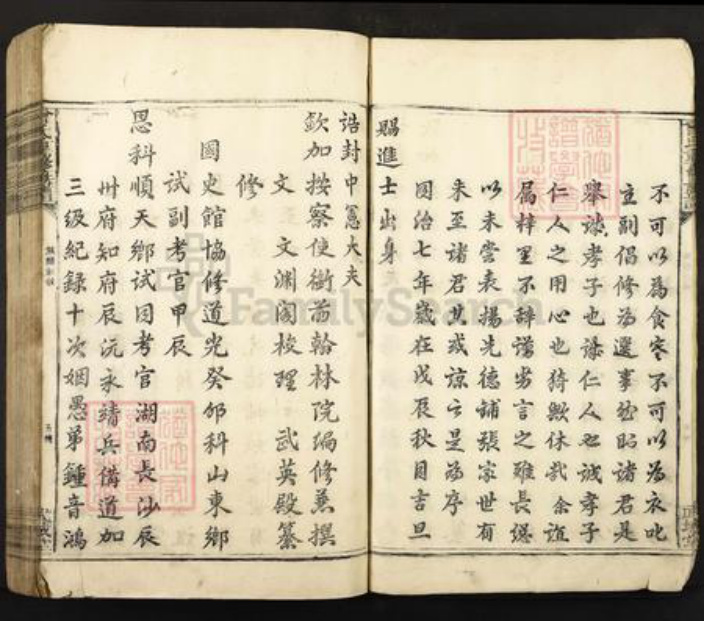 不可以為食寒不可以為衣叱
主副倡修為選事哉昭諸君是
舉誠孝子也誠仁人也誠孝子
仁人之用心也猗歟休哉余誼
屬梓里不辭謭劣言之雖長總
以未嘗表揚先德鋪張家世有
朱至諸君其或諒云是為序
同治七年歲在戊辰秋月吉旦
賜進士出身
誥封中憲大夫
欽加按察使銜前翰林院編修兼撰
文 文淵閣校理 武英殿纂
修
國史館協修道光癸卯科山東鄉
試副考官甲辰
恩科順天鄉試同考官湖南長沙辰
州府知府辰沅永靖兵備道加
三級紀錄十次姻愚弟鍾音鴻
FamilySearch